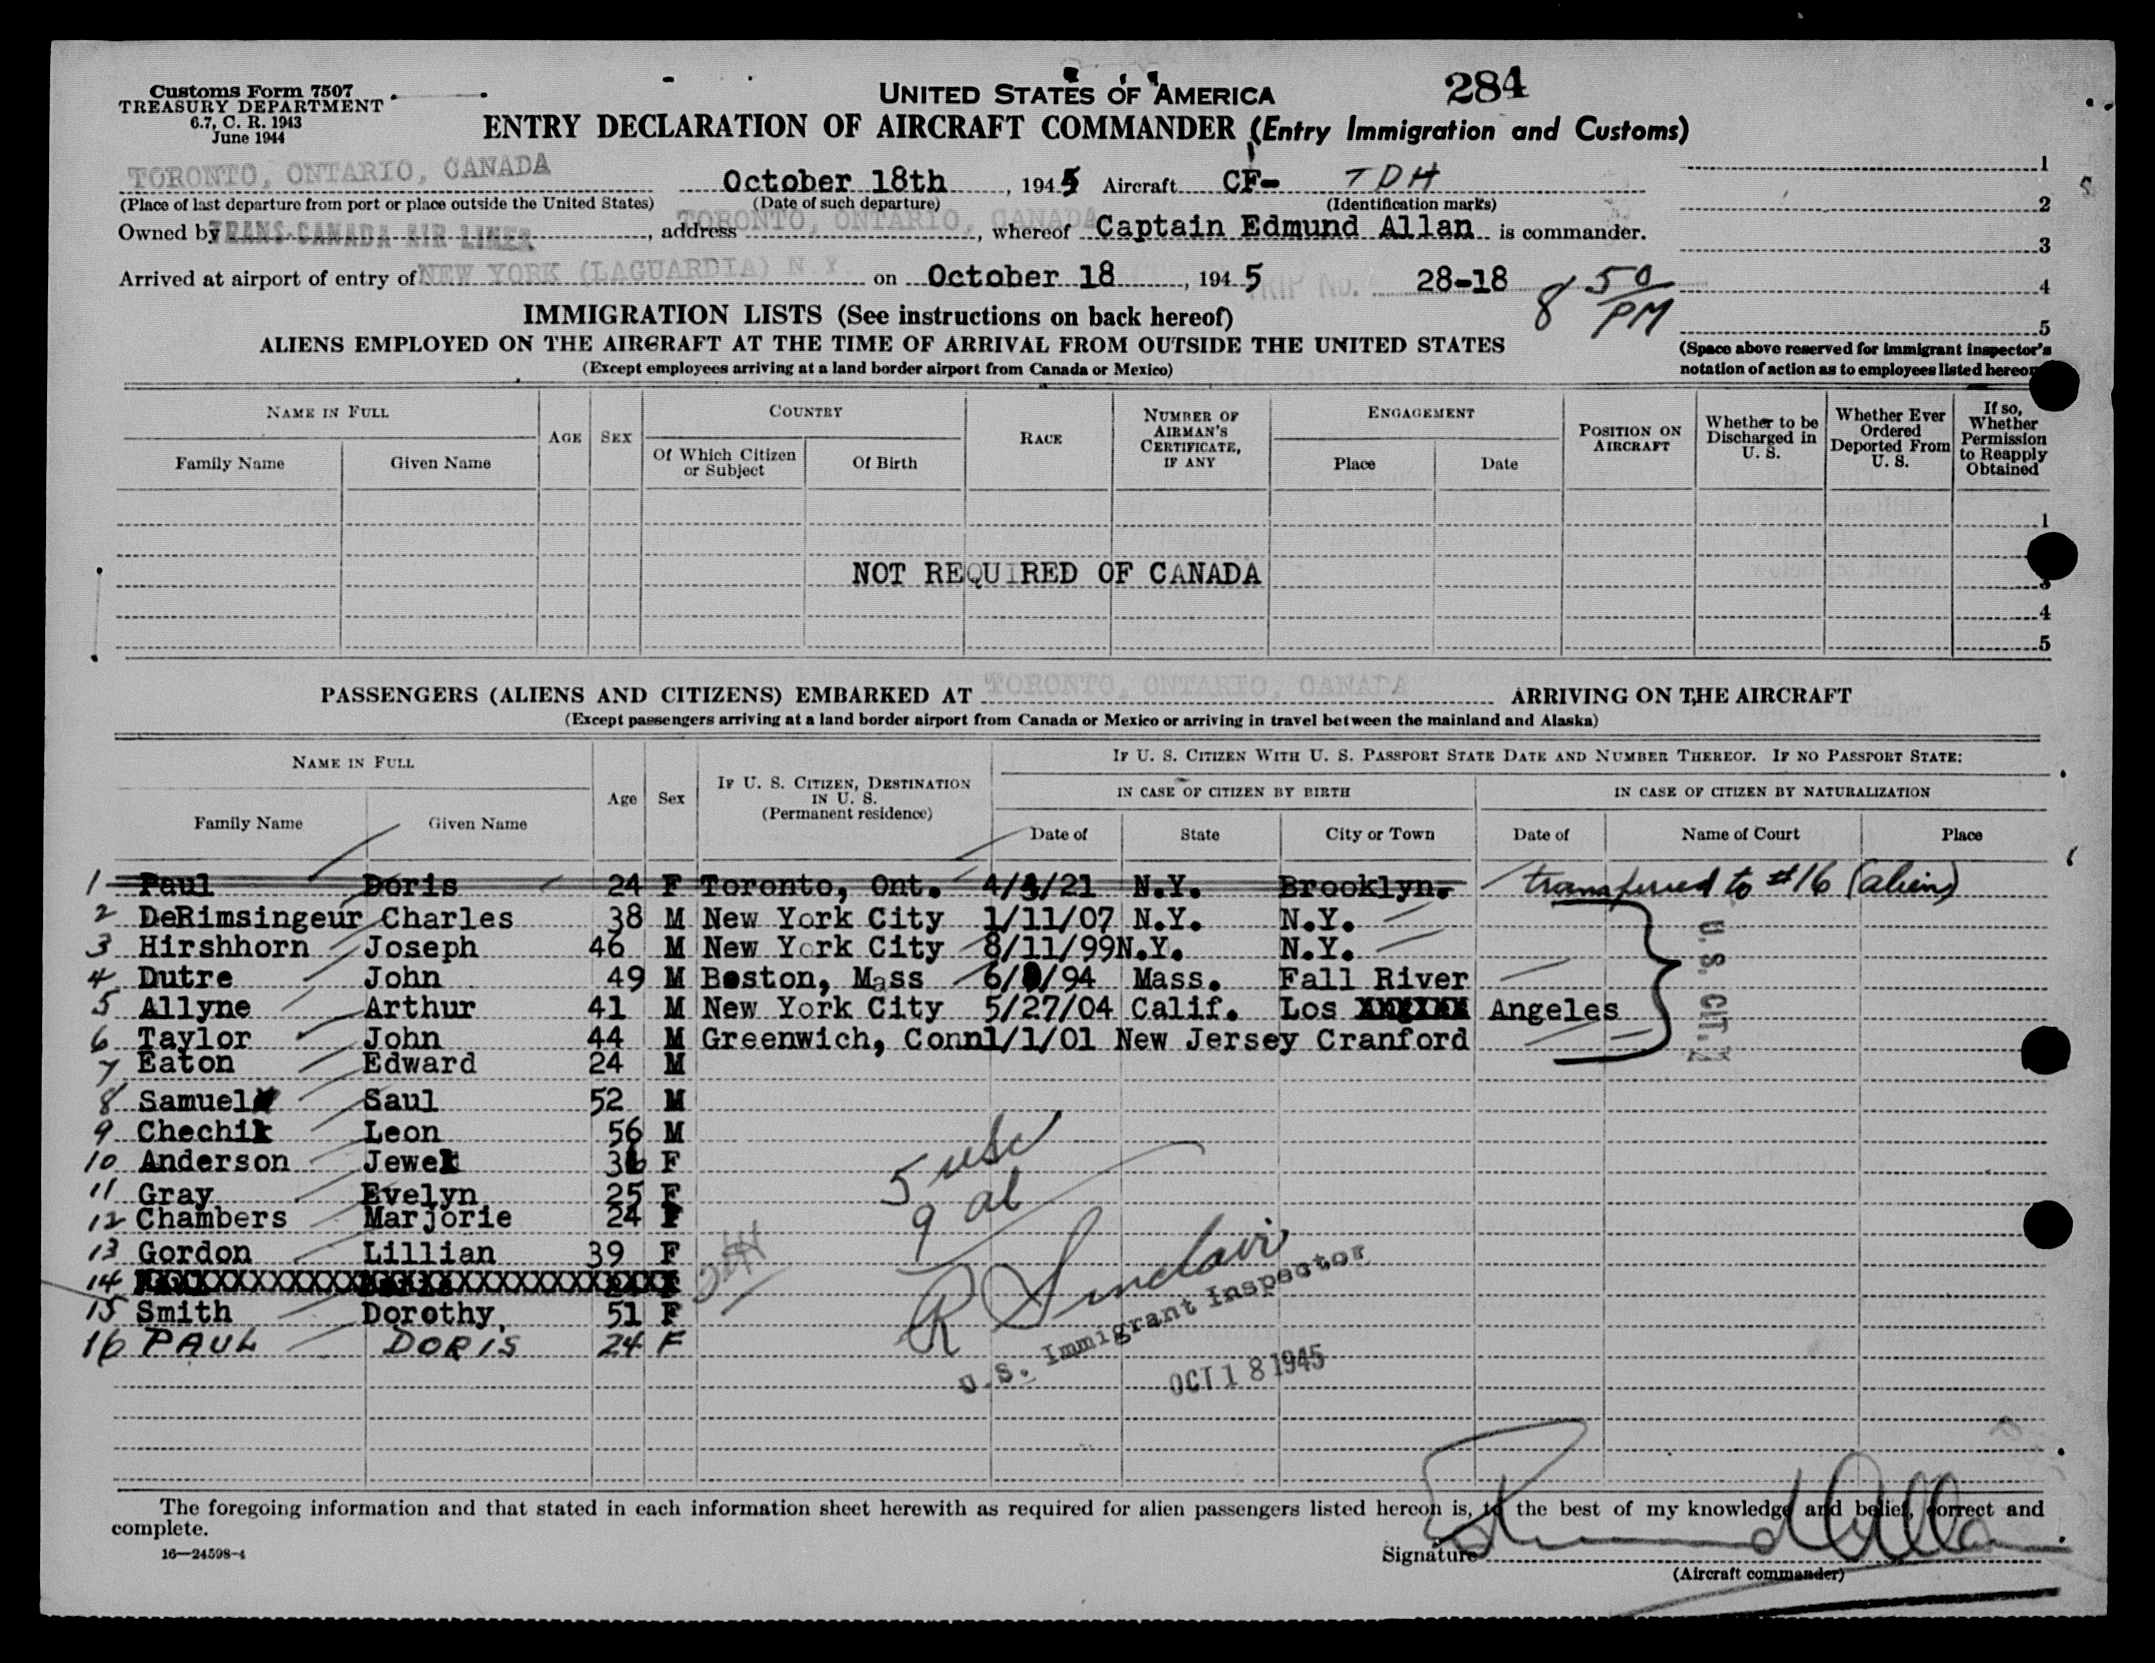 Customs Form 7507
TREASURY DEPARTMENT
6.7, C. R. 1943
June 1944
UNITED STATES OF AMERICA
284
ENTRY DECLARATION OF AIRCRAFT COMMANDER (Entry Immigration and Customs)
TORONTO, ONTARIO, CANADA October 18th, 1945 Aircraft CF- TDH
(Place of last departure from port or place outside the United States) (Date of such departure) (Identification marks)
Owned by TRANS-CANADA AIR LINES, address TORONTO, ONTARIO, CANADA, whereof Captain Edmund Allan is commander.
Arrived at airport of entry of NEW YORK (LAGUARDIA) N.Y. on October 18, 1945 TRIP No. 28-18 8 50 PM
1
2
3
4
5
(Space above reserved for immigrant inspector's notation of action as to employees listed hereon
IMMIGRATION LISTS (See instructions on back hereof)
ALIENS EMPLOYED ON THE AIRCRAFT AT THE TIME OF ARRIVAL FROM OUTSIDE THE UNITED STATES
(Except employees arriving at a land border airport from Canada or Mexico)
NAME IN FULL
Family Name Given Name
AGE SEX
COUNTRY
Of Which Citizen or Subject Of Birth
RACE
NUMBER OF AIRMAN'S CERTIFICATE, IF ANY
ENGAGEMENT
Place Date
POSITION ON AIRCRAFT
Whether to be Discharged in U. S.
Whether Ever Ordered Deported From U. S.
If so, Whether Permission to Reapply Obtained
1
NOT REQUIRED OF CANADA
3
4
5
PASSENGERS (ALIENS AND CITIZENS) EMBARKED AT TORONTO, ONTARIO, CANADA ARRIVING ON THE AIRCRAFT
(Except passengers arriving at a land border airport from Canada or Mexico or arriving in travel between the mainland and Alaska)
NAME IN FULL
Family Name Given Name
Age Sex
IF U. S. CITIZEN, DESTINATION IN U. S. (Permanent residence)
IF U. S. CITIZEN WITH U. S. PASSPORT STATE DATE AND NUMBER THEREOF. IF NO PASSPORT STATE:
IN CASE OF CITIZEN BY BIRTH IN CASE OF CITIZEN BY NATURALIZATION
Date of State City or Town Date of Name of Court Place
1 Paul Doris 24 F Toronto, Ont. 4/3/21 N.Y. Brooklyn. transferred to #16 (aliens)
2 DeRimsingeur Charles 38 M New York City 1/11/07 N.Y. N.Y.
3 Hirshhorn Joseph 46 M New York City 8/11/99 N.Y. N.Y.
4 Dutre John 49 M Boston, Mass 6/ /94 Mass. Fall River
5 Allyne Arthur 41 M New York City 5/27/04 Calif. Los Angeles
6 Taylor John 44 M Greenwich, Conn 1/1/01 New Jersey Cranford
U. S. CIT.
7 Eaton Edward 24 M
8 Samuel Saul 52 M
9 Chechik Leon 56 M
10 Anderson Jewel 36 F
11 Gray Evelyn 25 F
12 Chambers Marjorie 24 F
13 Gordon Lillian 39 F
14
15 Smith Dorothy 51 F
16 PAUL DORIS 24 F
5 usc
9 al
R Sinclair
U.S. Immigrant Inspector
OCT 18 1945
The foregoing information and that stated in each information sheet herewith as required for alien passengers listed hereon is, to the best of my knowledge and belief, correct and
complete.
16—24598-4
Signature Edmund Allan
(Aircraft commander)